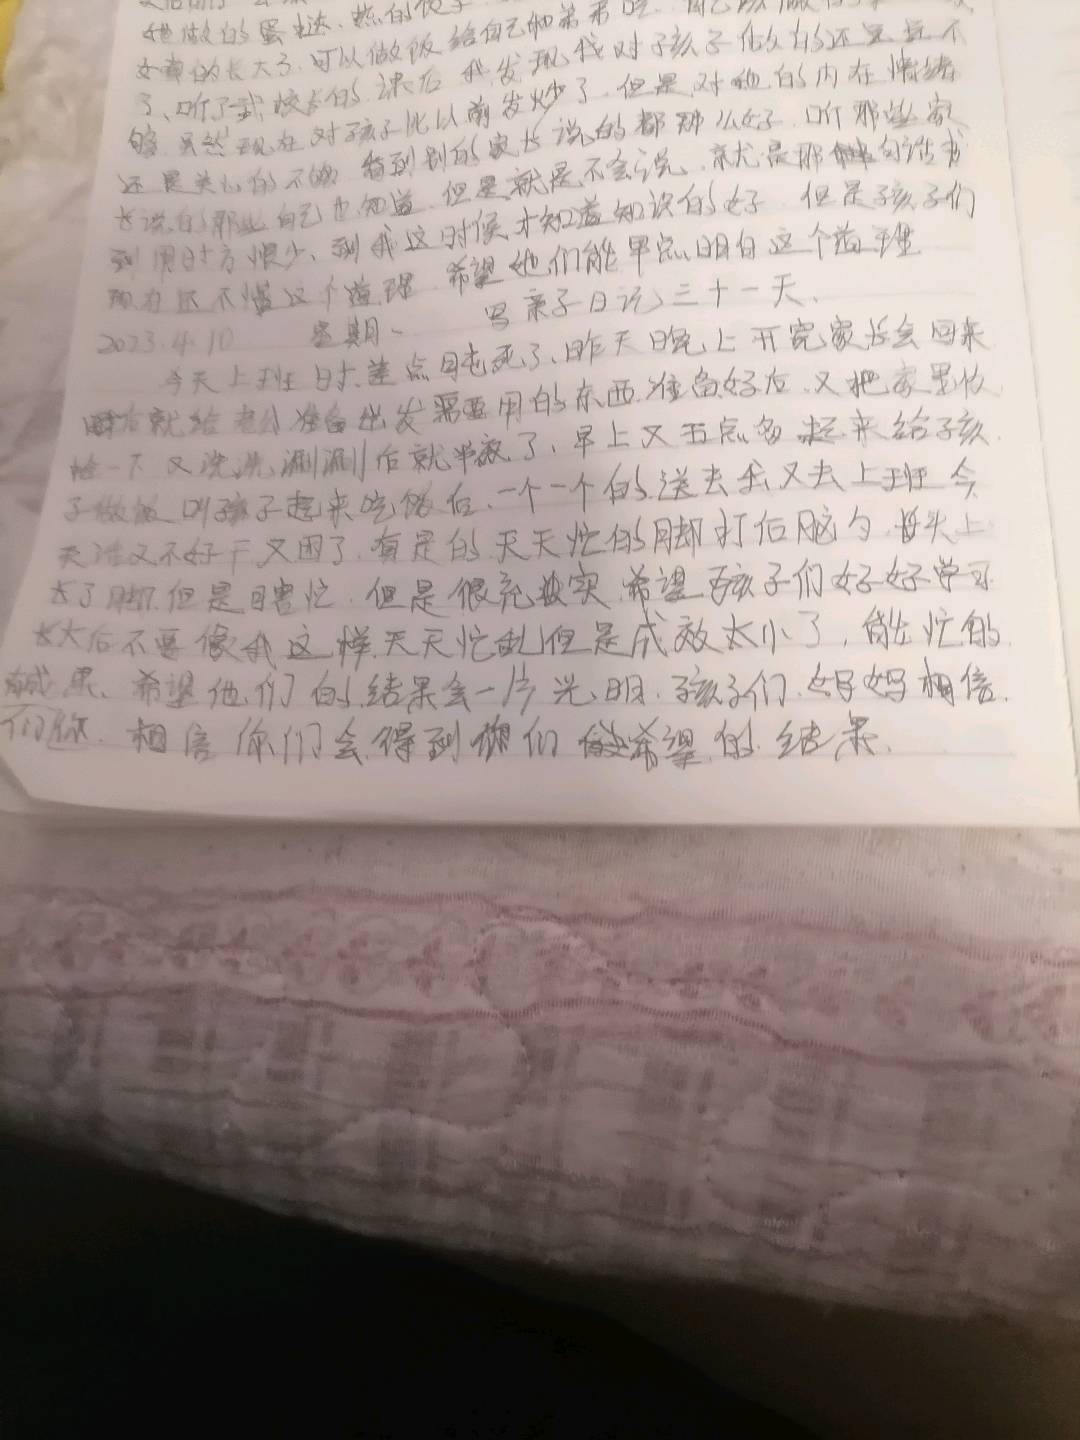 她做的蛋挞、熬的
女儿的长大了，可以做饭给自己和弟弟吃
了、听了武校长的课后我发现我对孩子做的还是远不
够虽然现在对孩子比以前发火少了但是对他的内在情绪
还是关心的不够看到别的家长说的都那么好听那些家
长说的那些自己也知道但是就是不会说就是那句话书
到用时方恨少、到我这时候才知道知识的好但是孩子们
现在还不懂这个道理希望他们能早点明白这个道理
写亲子日记三十一天、
2023.4.10 星期一
今天上班时差点困死了、昨天晚上开完家长会回来
后就给老公准备出发需要用的东西准备好后又把家里收
拾一下又洗洗涮涮后就半夜了、早上又五点多起来给孩
子做饭叫孩子起来吃饭后、一个一个的送去我又去上班今
天活又不好干又困了、真是的天天忙的脚打后脑勺头上
长了脚但是瞎忙但是很充实希望孩子们好好学习
长大后不要像我这样天天忙乱但是成效太小了，能忙的
成果、希望他们的结果会一片光明、孩子们妈妈相信
你们相信你们会得到你们希望的结果、